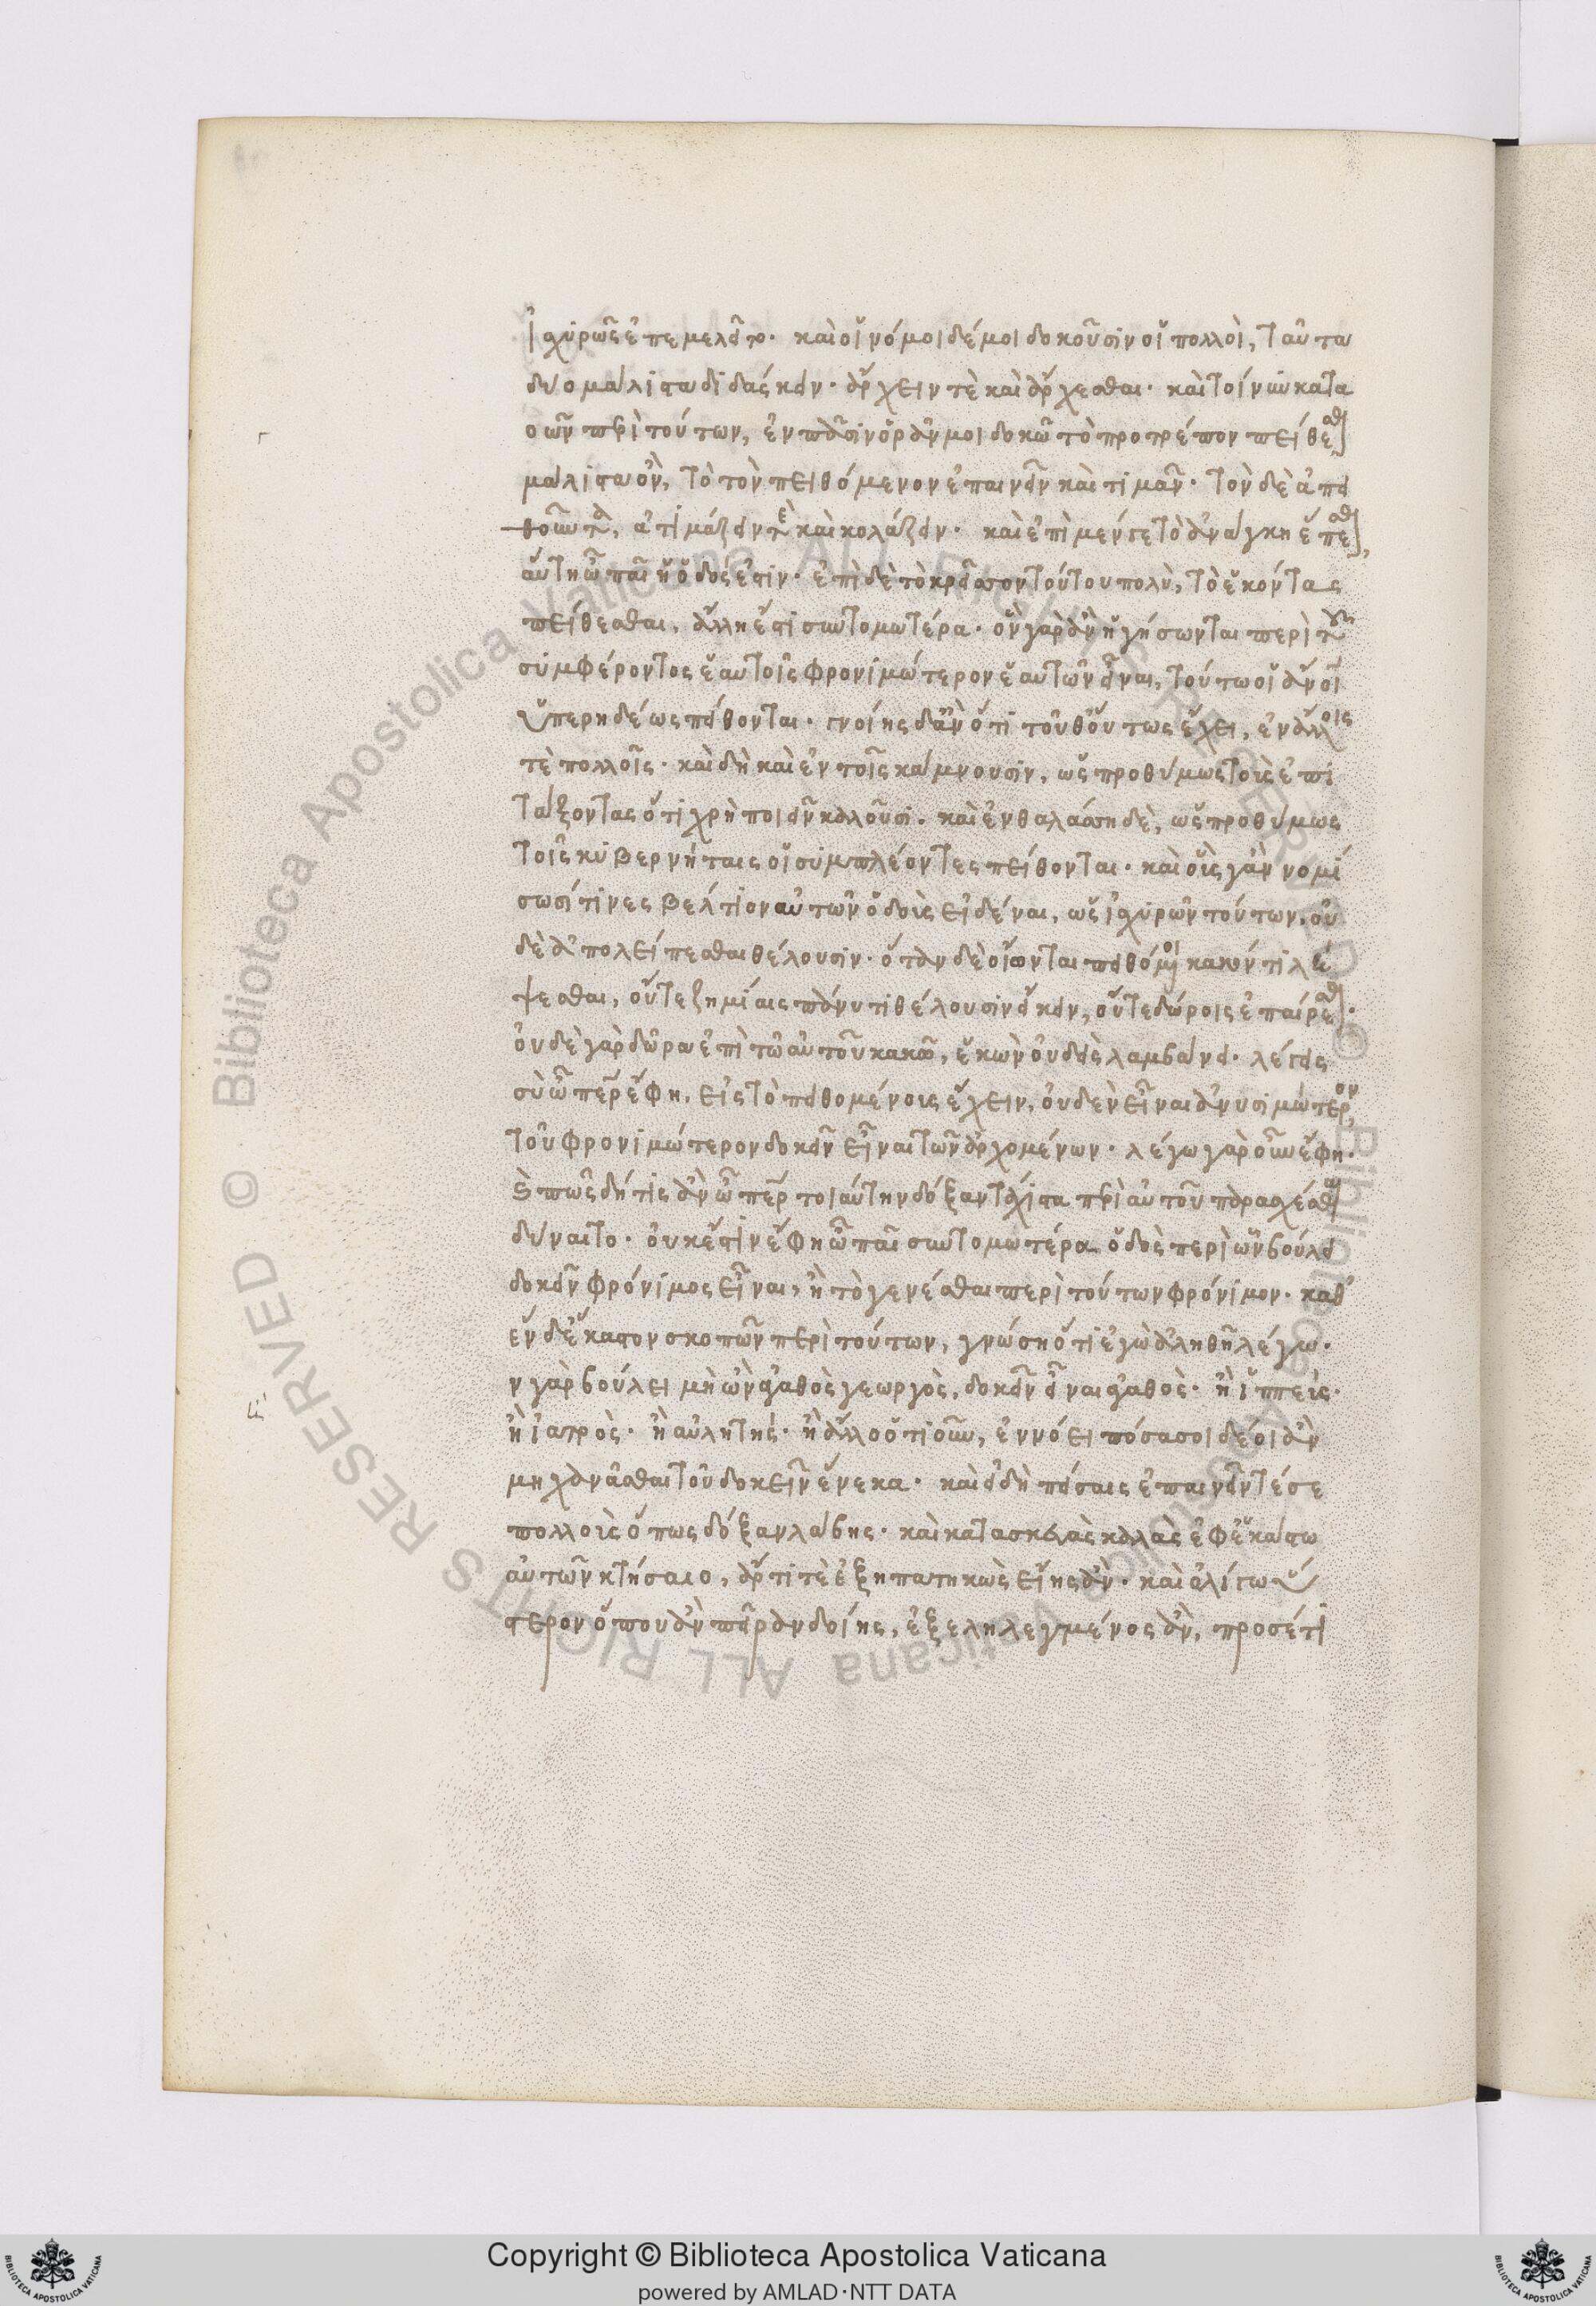 ἰσχυρῶς ἐπεμελεῖτο. καὶ οἱ νόμοι δέ μοι δοκοῦσιν οἱ πολλοὶ, ταῦτα
δύο μάλιστα διδάσκειν. ἄρχειν τὲ καὶ ἄρχεσθαι. καὶ τοίνυν κατα
νοῶν περὶ τούτων, ἐν πᾶσιν ὁρᾶν μοι δοκῶ τὸ προτρέπον πείθεσθαι
μάλιστα ὂν, τὸ τὸν πειθόμενον ἐπαινεῖν καὶ τιμᾶν. τὸν δὲ ἀπει
θοῦντα, ἀτιμάζειν τὲ καὶ κολάζειν. καὶ ἐπὶ μέν γε τὸ ἀνάγκη ἕπεσθαι,
αὕτη ὦ παῖ ἡ ὁδός ἐστιν. ἐπὶ δὲ τὸ κρεῖσσον τούτου πολὺ, τὸ ἑκόντας
πείθεσθαι, ἄλλη ἐστὶ συντομωτέρα. ὃν γὰρ ἂν ἡγήσωνται περὶ τοῦ
συμφέροντος ἑαυτοῖς φρονιμώτερον ἑαυτῶν εἶναι, τούτω οἱ ἄνοι
ὑπερηδέως πείθονται. γνοίης δ' ἂν ὅτι τοῦθ' οὕτως ἔχει, ἐν ἄλλοις
τὲ πολλοῖς. καὶ δὴ καὶ ἐν τοῖς κάμνουσιν, ὡς προθύμως τοὺς ἐπι
τάξοντας ὅτι χρὴ ποιεῖν καλοῦσι. καὶ ἐν θαλάσση δὲ, ὡς προθύμως
τοῖς κυβερνήταις οἱ συμπλέοντες πείθονται. καὶ οὕς γ' ἂν νομί
σωσί τινες βέλτιον αὑτῶν ὁδοὺς εἰδέναι, ὡς ἰσχυρῶν τούτων, οὐ
δὲ ἀπολείπεσθαι θέλουσιν. ὅταν δὲ οἴωνται πειθόμενοι κακόν τι λή
ψεσθαι, οὔτε ζημίαις πάνυ τι θέλουσιν εἴκειν, οὔτε δώροις ἐπαίρεσθαι.
οὐδὲ γὰρ δῶρα ἐπὶ τῶ αὑτοῦ κακῶ, ἑκὼν οὐδεὶς λαμβάνει. λέγεις
σὺ ὦ πάτερ ἔφη, εἰς τὸ πειθομένους ἔχειν, οὐδὲν εἶναι ἀνυσιμώτερον
τοῦ φρονιμώτερον δοκεῖν εἶναι τῶν ἀρχομένων. λέγω γὰρ οὖν ἔφη.
καὶ πῶς δή τις ἂν ὦ πάτερ τοιαύτην δόξαν τάχιστα περὶ αὑτοῦ παρασχέσθαι
δύναιτο. οὐκ ἔστιν ἔφη ὦ παῖ συντομωτέρα ὁδὸς περὶ ὧν βούλει
δοκεῖν φρόνιμος εἶναι, ἢ τὸ γενέσθαι περὶ τούτων φρόνιμον. καθ'
ἓν δ' ἕκαστον σκοπῶν περὶ τούτων, γνώση ὅτι ἐγὼ ἀληθῆ λέγω.
ν γὰρ βούλει μὴ ὢν ἀγαθὸς γεωργὸς, δοκεῖν εἶναι ἀγαθὸς. ἢ ἱππεὺς.
ἢ ἰατρὸς. ἢ αὐλητὴς. ἢ ἄλλο ὅτι οὖν, ἐννόει πόσα σοι δέοι ἂν
μηχανᾶσθαι τοῦ δοκεῖν ἕνεκα. καὶ εἰ δὴ πείσαις ἐπαινεῖν τέ σε
πολλοὺς ὅπως δόξαν λάβης. καὶ κατασκευὰς καλὰς ἐφ' ἑκάστω
αὐτῶν κτήσαιο, ἄρτι τὲ ἐξηπατηκὼς εἴης ἄν. καὶ ὀλίγω ὕ
στερον ὅπου ἂν πεῖραν δοίης, ἐξεληλεγμένος ἂν, προσέτι
Copyright © Biblioteca Apostolica Vaticana
powered by AMLAD·NTT DATA